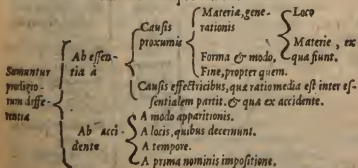 Sumuntur
prodigio-
rum diffe-
rentia
Ab essen-
tia à
Causis
proxumis
Materia, gene-
rationis
Loco
Materie, ex
qua fiunt.
Forma & modo,
Fine, propter quem.
Causis effectricibus, quæ ratio media est inter es-
sentialem partit. & quæ ex accidente.
Ab acci-
dente
A modo apparitionis.
A locis, quibus decernunt.
A tempore.
A prima nominis impositione.